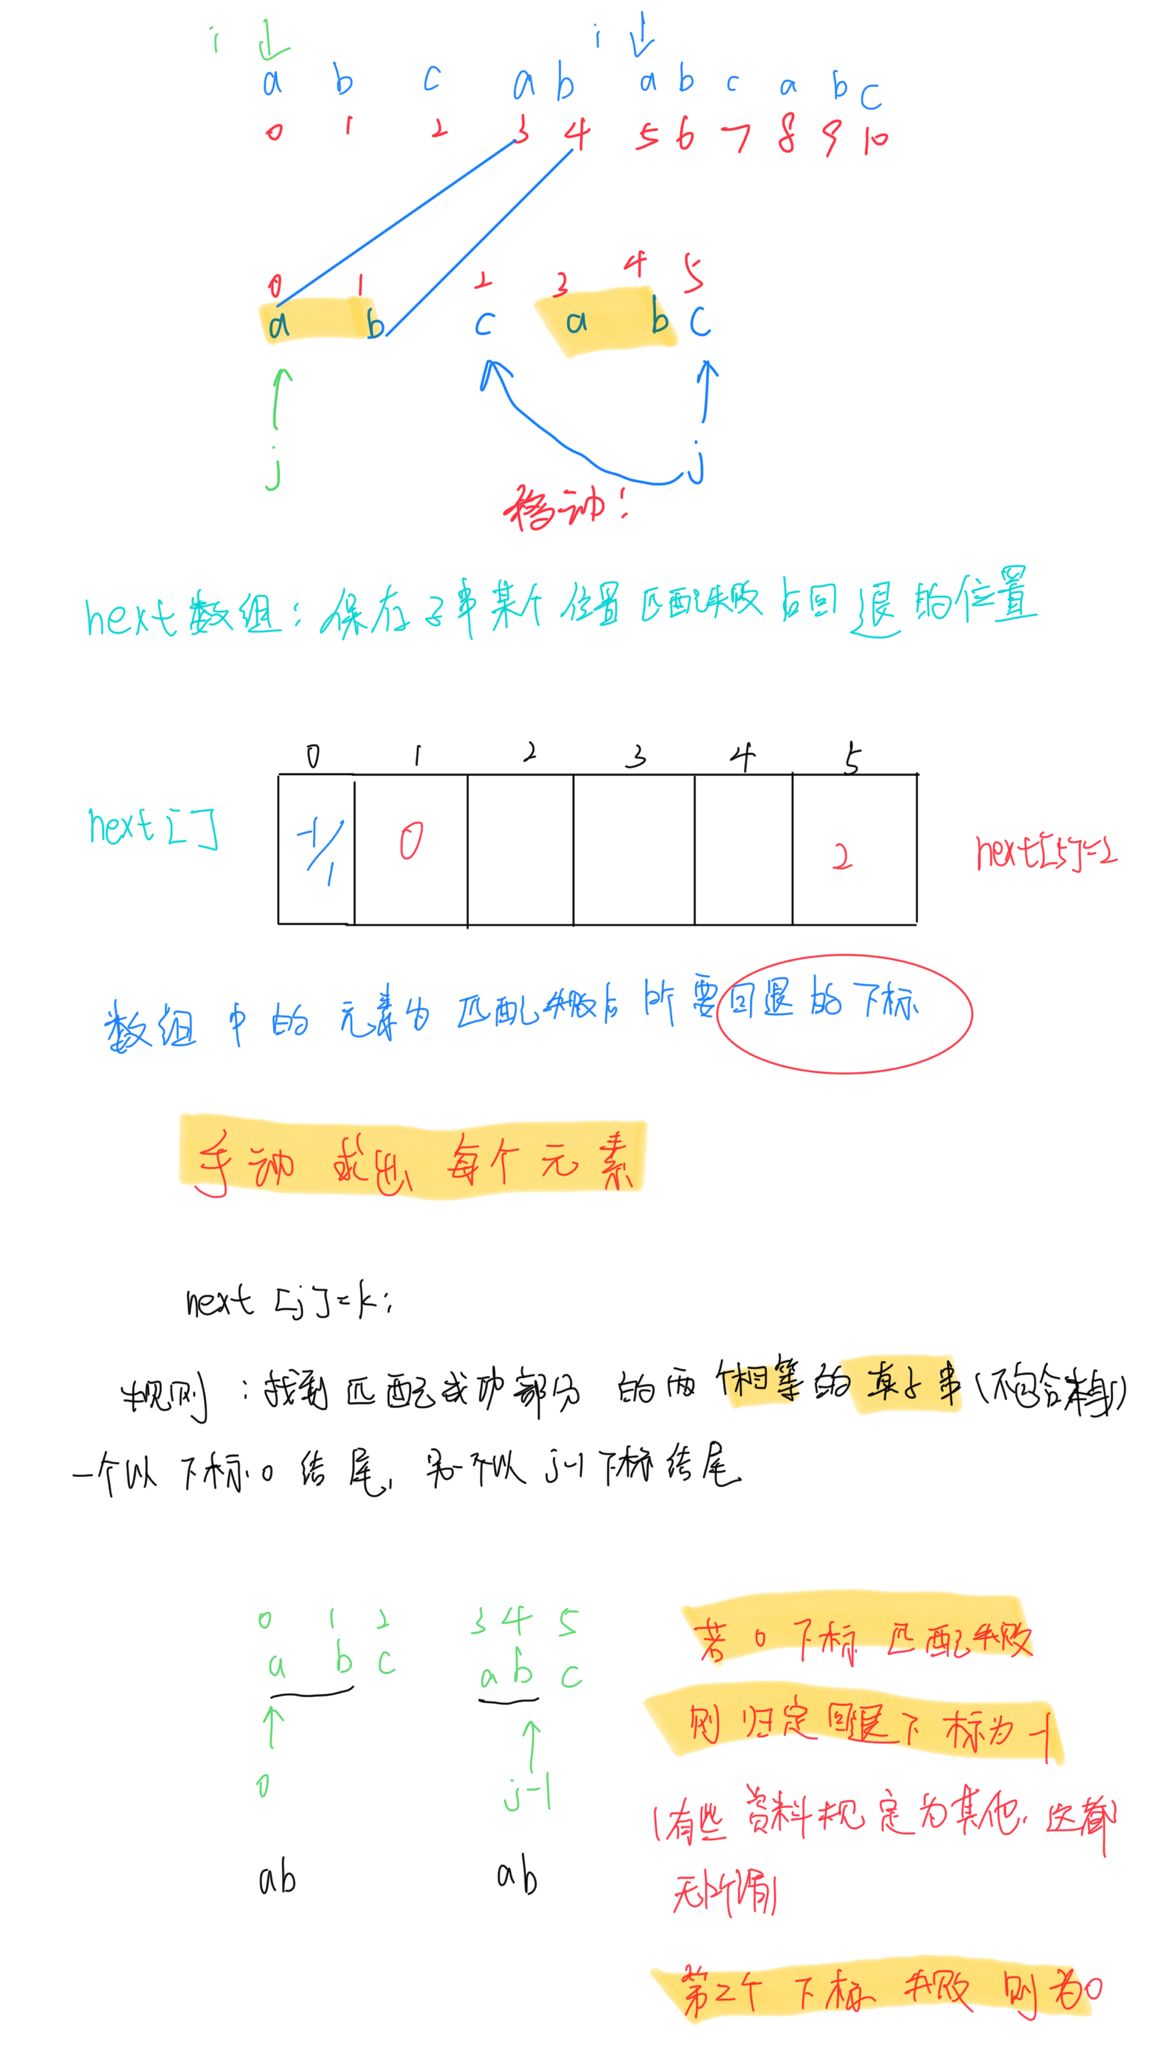 i i
a b c a b a b c a b c
0 1 2 3 4 5 6 7 8 9 10
0 1 2 3 4 5
a b c a b c
j j
移动!
next数组:保存子串某个位置匹配失败后回退的位置
0 1 2 3 4 5
next[] -1/1 0 2 next[5]=2
数组中的元素为匹配失败后所需要回退的下标
手动求出每个元素
next[j]=k;
规则:找到匹配成功部分的两个相等的真子串(不包含本身)
一个以下标0结尾,另一个以j-1下标结尾
0 1 2 3 4 5
a b c a b c
0 j-1
ab ab
若0下标匹配失败
则归定回退下标为-1
(有些资料规定为其他,这都
无所谓)
第2个下标失败则为0